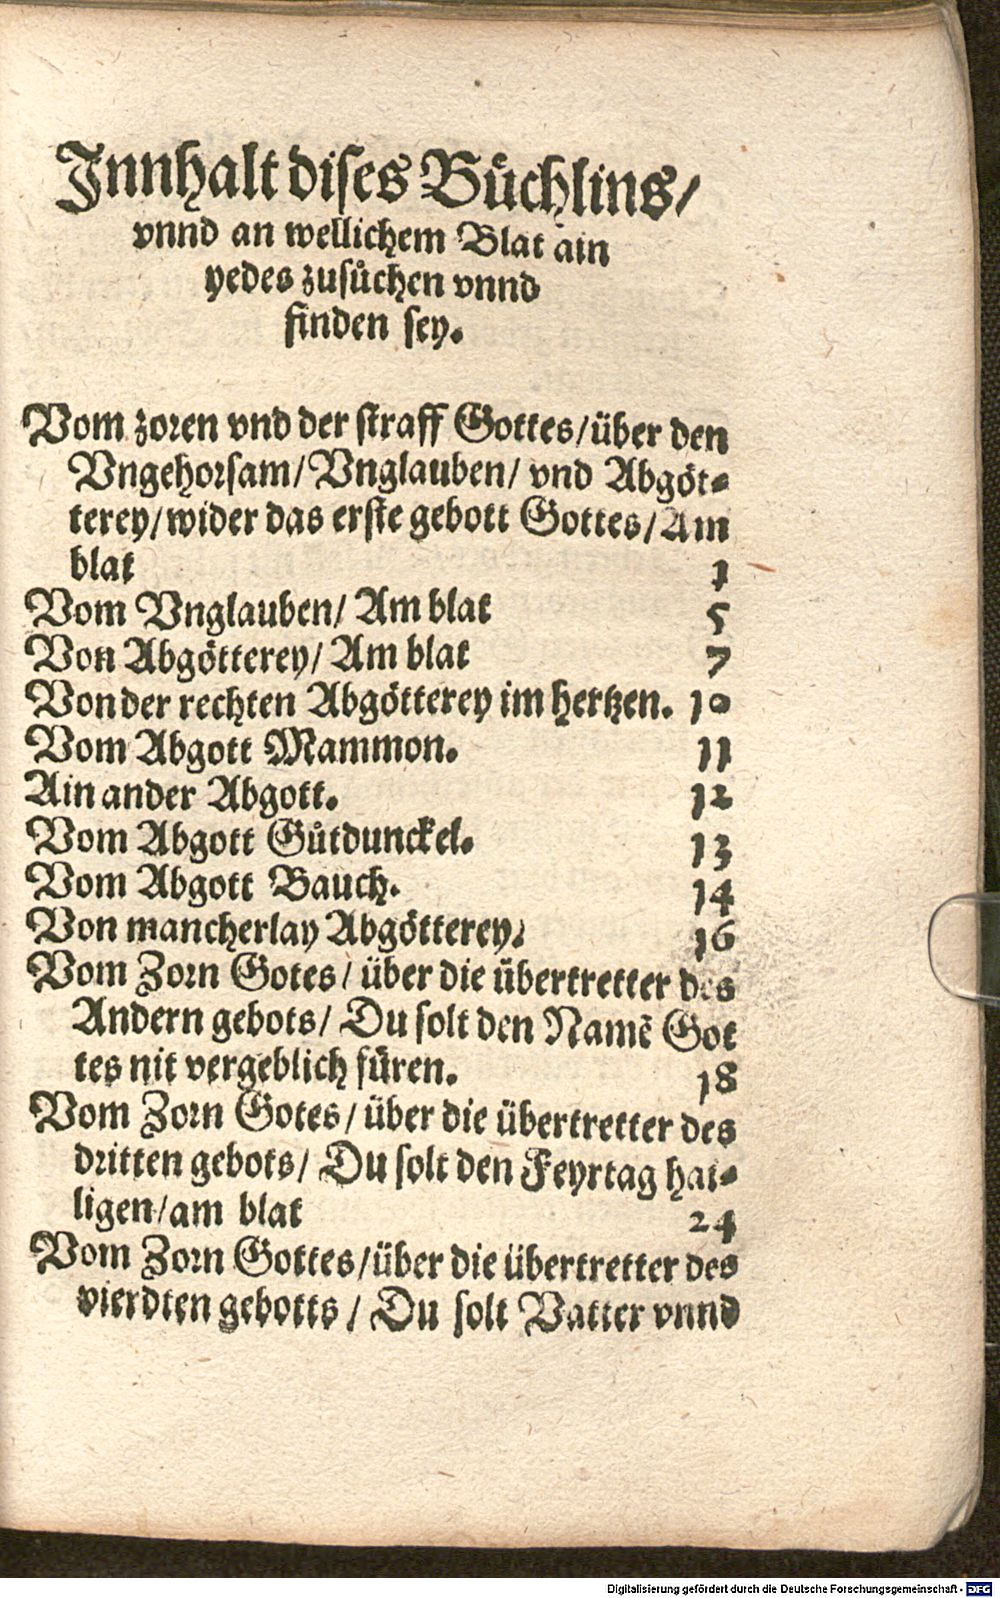 Innhalt dises Bůchlins/
vnnd an wellichem Blat ain
yedes zusůchen vnnd
finden sey.
Vom zoren vnd der straff Gottes/über den
Vngehorsam/Vnglauben/ vnd Abgöt-
terey/wider das erste gebott Gottes/Am
blat 1
Vom Vnglauben/ Am blat 5
Von Abgötterey/ Am blat 7
Von der rechten Abgötterey im hertzen. 10
Vom Abgott Mammon. 11
Ain ander Abgott. 12
Vom Abgott Gůtdunckel. 13
Vom Abgott Bauch. 14
Von mancherlay Abgötterey. 16
Vom Zorn Gotes/ über die übertretter des
Andern gebots/ Du solt den Namē Got
tes nit vergeblich füren. 18
Vom Zorn Gotes/ über die übertretter des
dritten gebots/ Du solt den Feyrtag hai-
ligen/am blat 24
Vom Zorn Gottes/über die übertretter des
vierdten gebotts/ Du solt Vatter vnnd
Digitalisierung gefördert durch die Deutsche Forschungsgemeinschaft - DFG